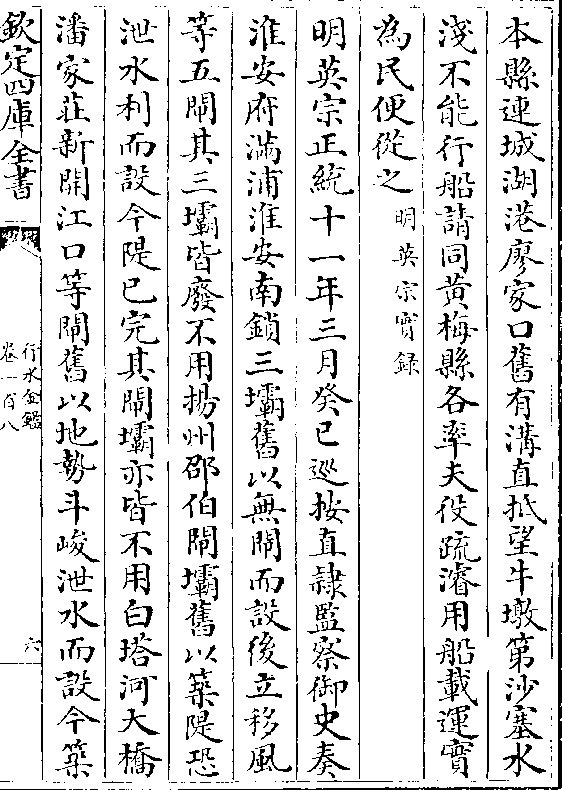 本縣連城湖港廖家口舊有溝直抵望牛墩第沙塞水
淺不能行船請同黃梅縣各率夫役疏濬用船載運實
為民便從之明英宗實録
明英宗正統十一年三月癸巳巡按直隷監察御史奏
淮安府滿浦淮安南鎖三壩舊以無閘而設後立移風
等五閘其三壩皆廢不用揚州邵伯閘壩舊以築隄恐
泄水利而設今隄已完其閘壩亦皆不用白塔河大橋
潘家莊新開江口等閘舊以地勢斗峻泄水而設今築
欽定四庫全書
行水金鑑
卷一百八
六